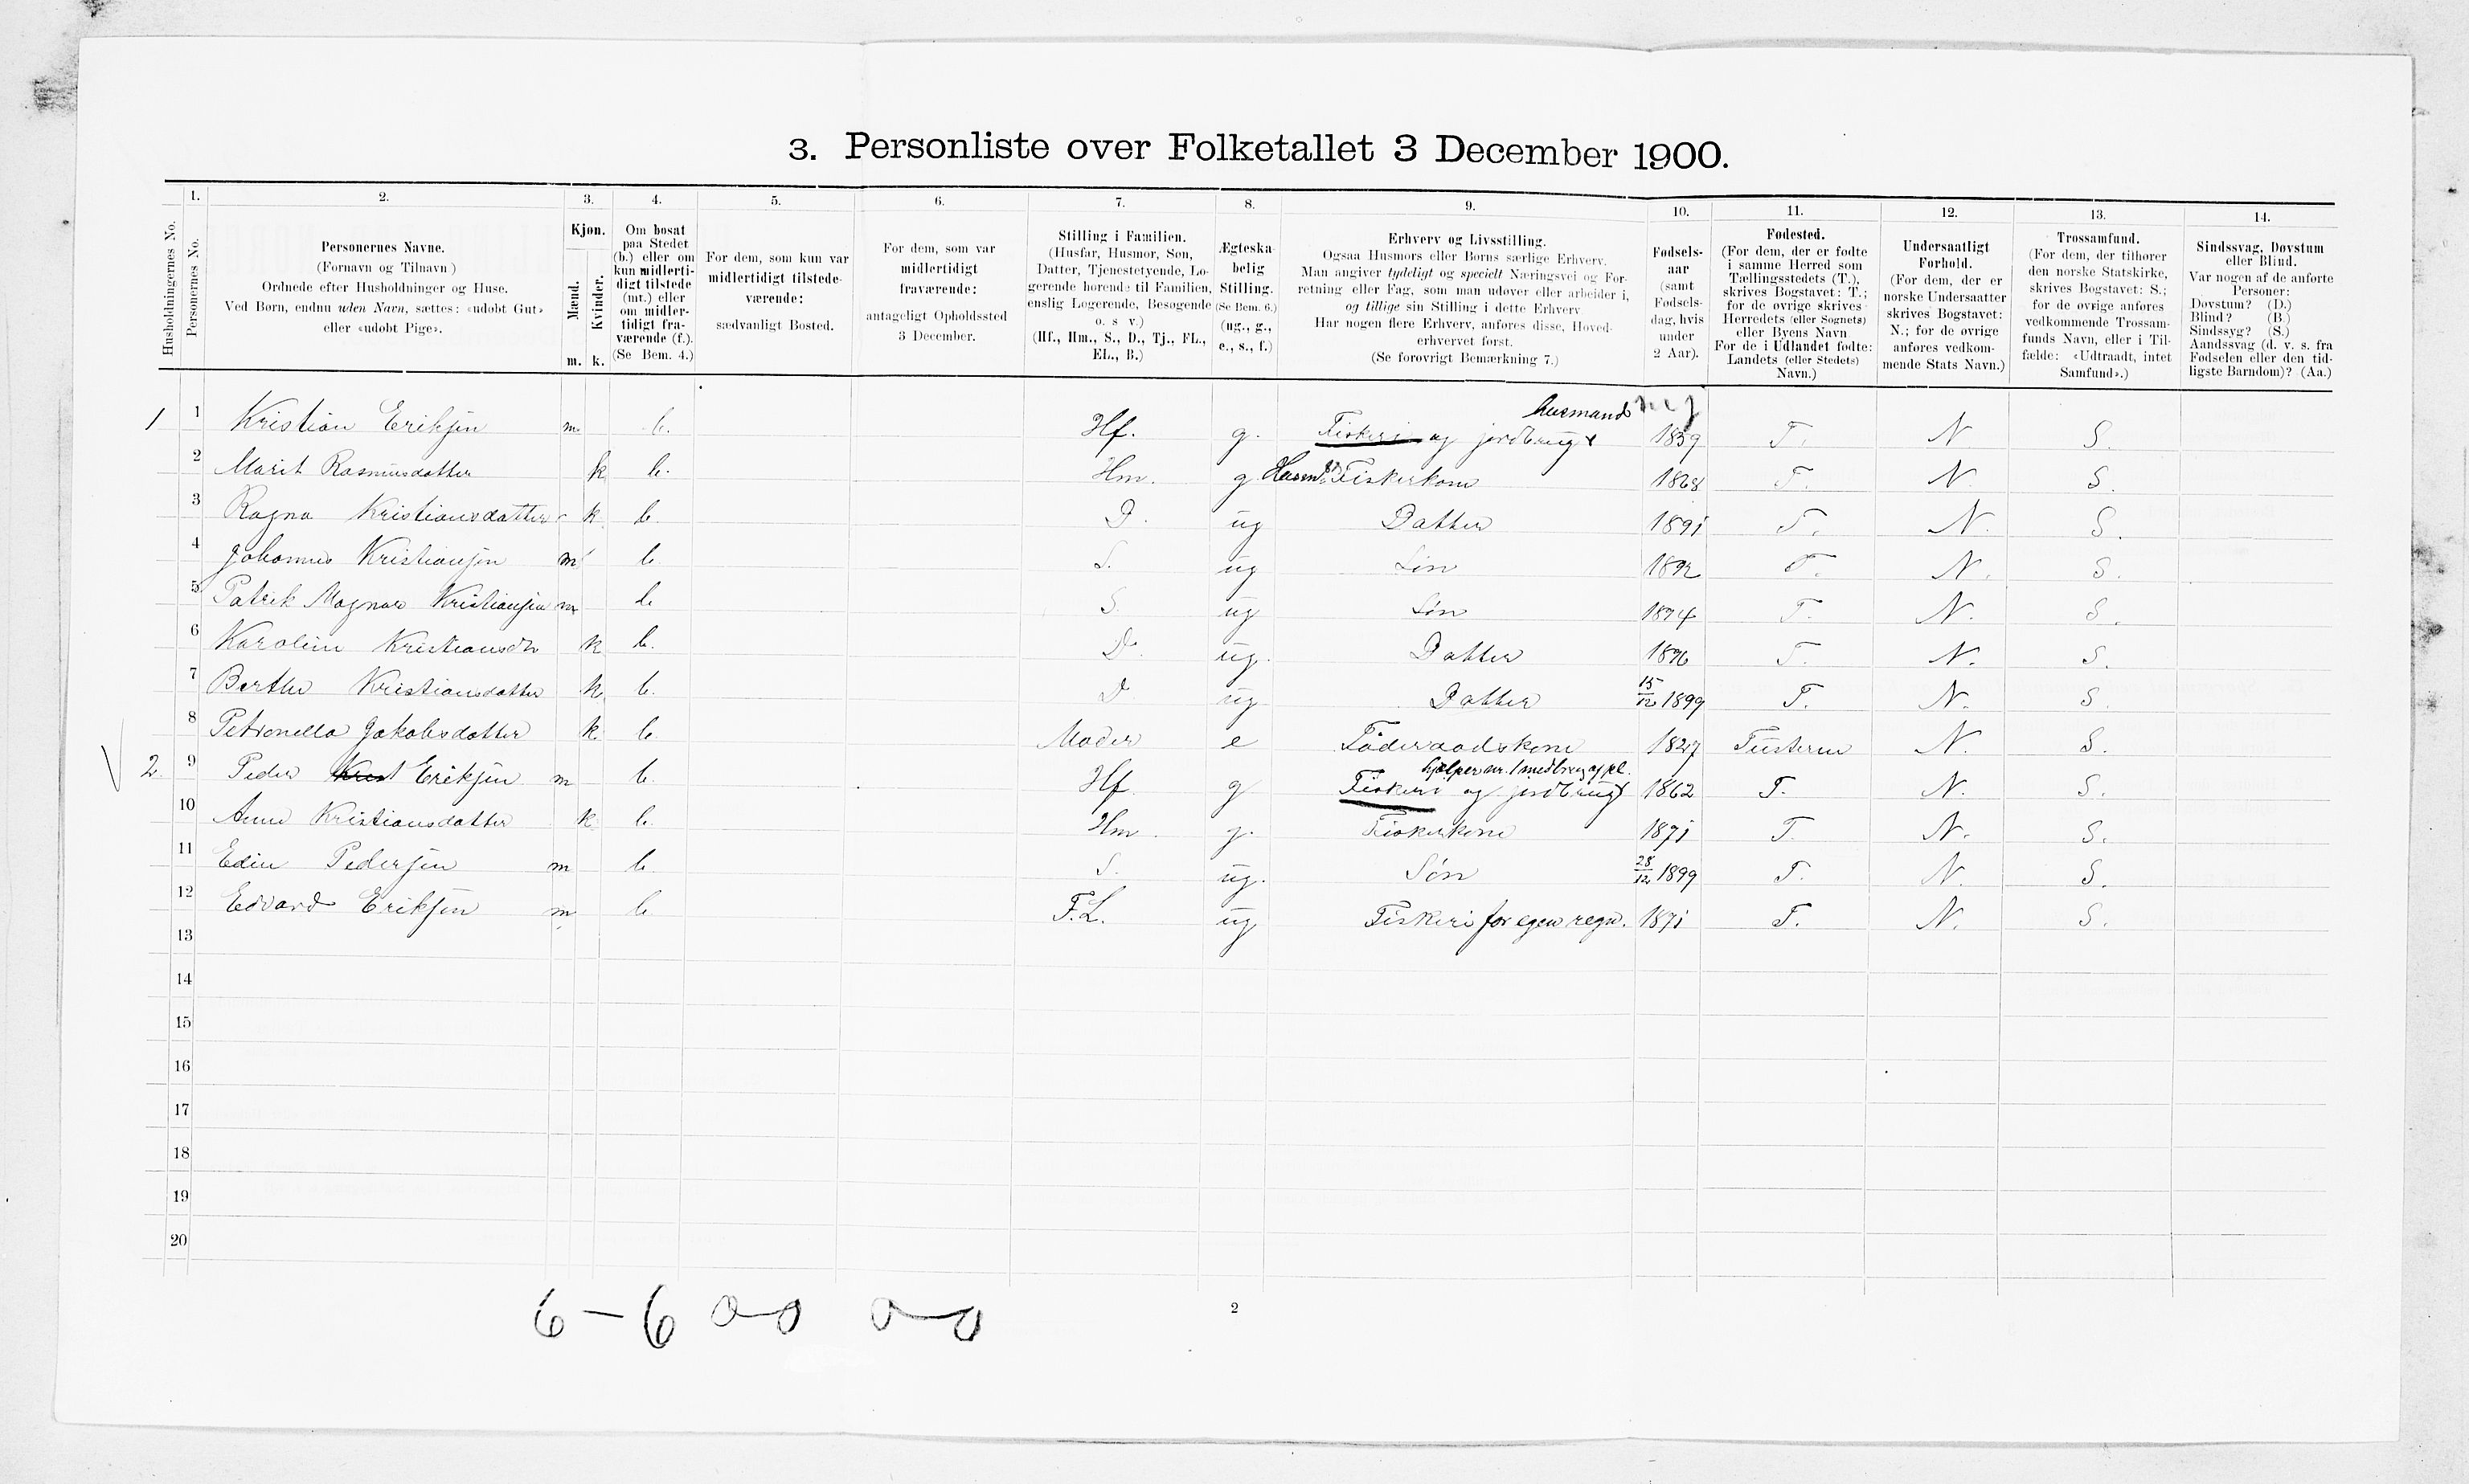 3. Personliste over Folketallet 3 December 1900.
Husholdningernes No.
1.
Personernes No.
2.
Personernes Navne.
(Fornavn og Tilnavn)
Ordnede efter Husholdninger og Huse.
Ved Børn, endnu uden Navn, sættes: «udøbt Gut»
eller «udøbt Pige».
3.
Kjøn.
Mænd.
Kvinder.
m. k.
4.
Om bosat
paa Stedet
(b.) eller om
kun midlerti-
digt tilstede
(mt.) eller
om midler-
tidigt fra-
værende (f.).
(Se Bem. 4.)
5.
For dem, som kun var
midlertidigt tilstede-
værende:
sædvanligt Bosted.
6.
For dem, som var
midlertidigt
fraværende:
antageligt Opholdssted
3 December.
7.
Stilling i Familien.
(Husfar, Husmor, Søn,
Datter, Tjenestetyende, Lo-
gerende hørende til Familien,
enslig Logerende, Besøgende
o. s v.)
(Hf., Hm., S., D., Tj., FL.,
EL., B.)
8.
Ægteska-
belig
Stilling.
(Se Bem. 6.)
(ug., g.,
e., s., f.)
9.
Erhverv og Livsstilling.
Ogsaa Husmors eller Børns særlige Erhverv.
Man angiver tydeligt og specielt Næringsvei og For-
retning eller Fag, som man udøver eller arbeider i,
og tillige sin Stilling i dette Erhverv
Har nogen flere Erhverv, anføres disse, Hoved-
erhvervet først.
(Se forøvrigt Bemærkning 7.)
10.
Fødsels-
aar
(samt
Fødsels-
dag, hvis
under
2 Aar).
11.
Fødested.
(For dem, der er fødte
i samme Herred som
Tællingsstedets (T.),
skrives Bogstavet: T.;
for de øvrige skrives
Herredets (eller Sognets)
eller Byens Navn
For de i Udlandet fødte:
Landets (eller Stedets)
Navn.)
12.
Undersaatligt
Forhold.
(For dem, der er
norske Undersaatter
skrives Bogstavet:
N.; for de øvrige
anføres vedkom-
mende Stats Navn.)
13.
Trossamfund.
(For dem, der tilhører
den norske Statskirke,
skrives Bogstavet: S.;
for de øvrige anføres
vedkommende Trossam-
funds Navn, eller i Til-
fælde: «Udtraadt, intet
Samfund».)
14.
Sindssvag, Døvstum
eller Blind.
Var nogen af de anførte
Personer:
Døvstum? (D.)
Blind? (B.)
Sindssyg? (S.)
Aandssvag (d. v. s. fra
Fødselen eller den tid-
ligste Barndom)? (Aa.)
husmand
1 1 Kristian Eriksen m. b. Hf. g. Fiskeri og jordbrug 1859 T. N S.
2 Marit Rasmusdatter k b. Hm. g Fiskerkone 1868 T. N. S.
3 Ragna Kristiansdatter k. b. D. ug Datter 1891 T. N. S.
4 Johannes Kristiansen m b. S. ug Søn 1892 T. N. S.
5 Patrik Magnus Kristiansen m b. S. ug Søn 1894 T. N. S.
6 Karolin Kristiansdr k b. D. ug. Datter 1896 T. N. S.
7 Berthe Kristiansdatter k b. D ug Datter 15/12 1899 T. N. S.
8 Petronella Jakobsdatter k. b. Moder e Føderaadskone 1827 Tusteren N. S.
hjælper nr. 1 med
2 9 Peder Krist Eriksen m b. Hf. g Fiskeri og jordbrug 1862 T. N. S.
10 Anne Kristiansdatter k b. Hm. g. Fiskerkone 1871 T. N. S.
11 Edin Pedersen m b. S. ug. Søn 28/12 1899 T. N. S.
12 Edvard Eriksen m b. F.L. ug Fiskeri for egen regn. 1871 T. N. S.
13
14
15
16
17
18
19
20
6 – 6 0–0 0–0
2